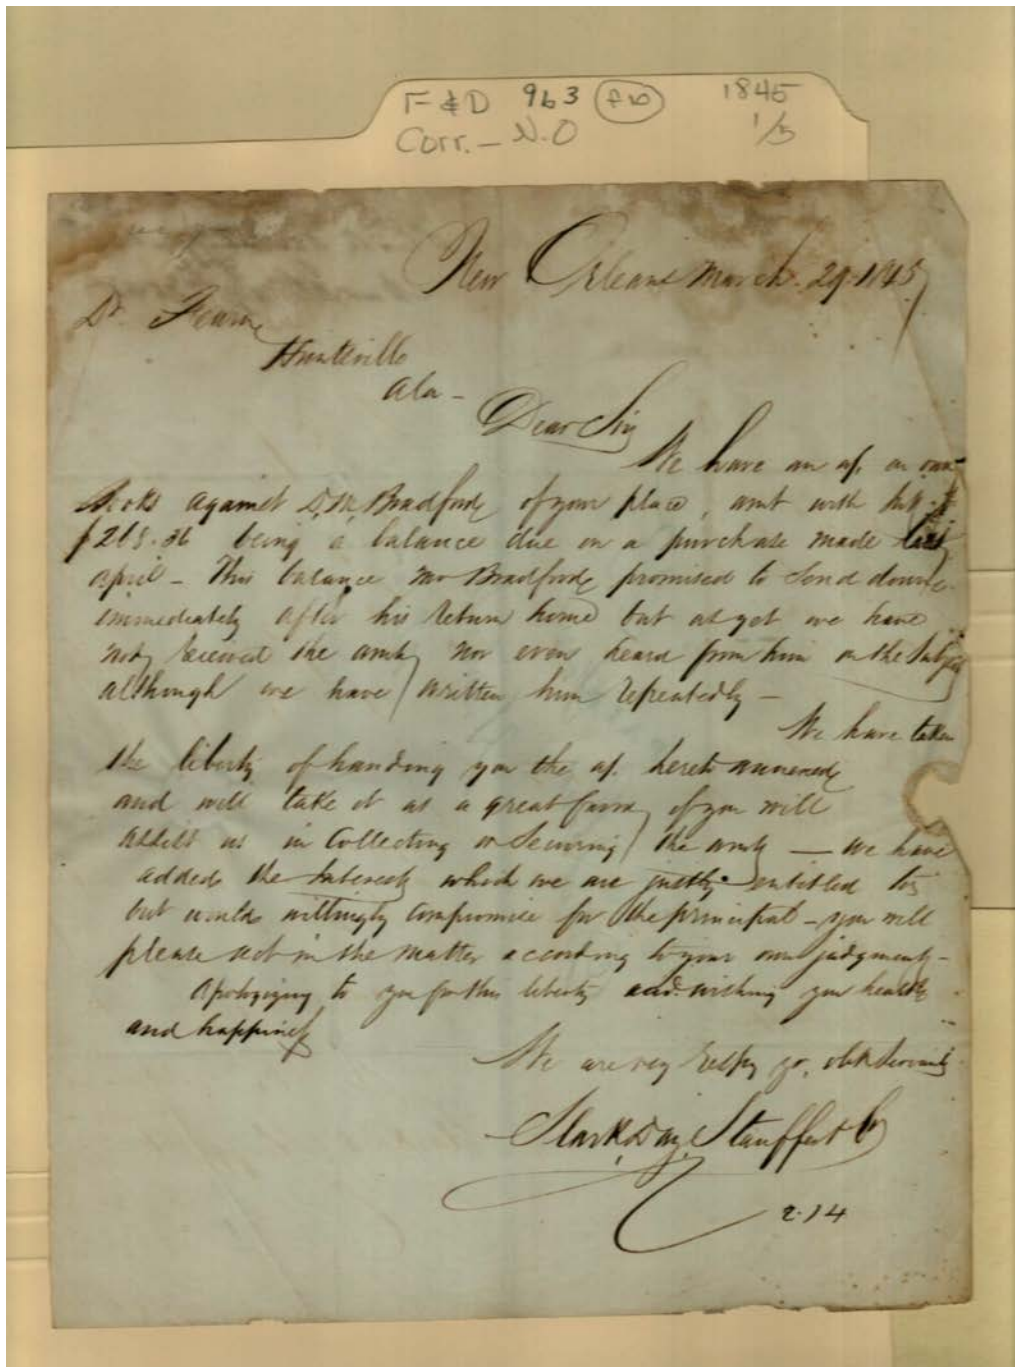 F & D 963 1845
Corr. - N.O 1/5
New Orleans March. 29. 1845
Dr. Fearn
Huntsville
Ala -
Dear Sir
We have an a/c on our
Books against D. M. Bradford of your place, amt with int
$268.36 being a balance due on a purchase made last
April - This balance Mr Bradford promised to send down
immediately after his return home but as yet we have
not received the amt, nor even heard from him on the Subject
although we have written him repeatedly -
We have taken
the liberty of handing you the a/c hereto annexed
and will take it as a great favor if you will
assist us in Collecting or Securing the amt — we have
added the Interest which we are justly entitled to
but would willingly compromise for the principal - you will
please act in the matter according to your own judgment -
Apologizing to you for this liberty and wishing you health
and happiness
We are very Respy yr. obt Servants
Slark, Day, Stauffer & Co
2.14